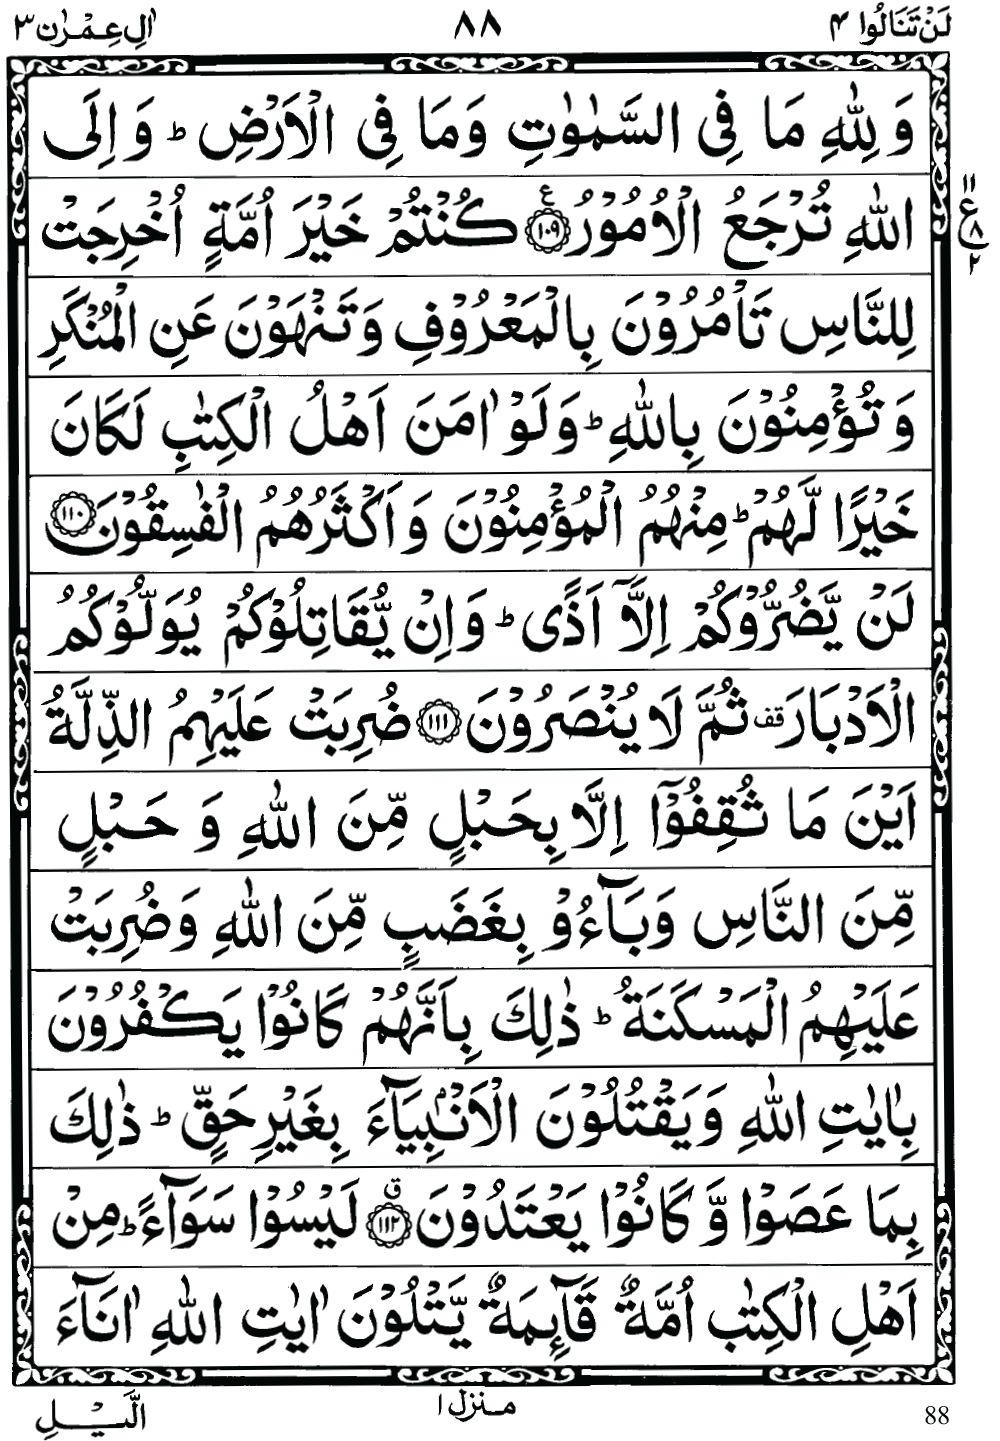 لَنْ تَنَالُوا ۴ ۸۸ اٰلِ عِمْرٰن ۳
وَ لِلّٰهِ مَا فِی السَّمٰوٰتِ وَمَا فِی الْاَرْضِ ؕ وَ اِلَی
اللّٰهِ تُرْجَعُ الْاُمُوْرُ ۧ﴿۱۰۹﴾ كُنْتُمْ خَیْرَ اُمَّةٍ اُخْرِجَتْ
۱۱ ع ۸ ۲
لِلنَّاسِ تَاْمُرُوْنَ بِالْمَعْرُوْفِ وَ تَنْهَوْنَ عَنِ الْمُنْكَرِ
وَ تُؤْمِنُوْنَ بِاللّٰهِ ؕ وَ لَوْ اٰمَنَ اَهْلُ الْكِتٰبِ لَكَانَ
خَیْرًا لَّهُمْ ؕ مِنْهُمُ الْمُؤْمِنُوْنَ وَ اَكْثَرُهُمُ الْفٰسِقُوْنَ ﴿۱۱۰﴾
لَنْ یَّضُرُّوْكُمْ اِلَّاۤ اَذًی ؕ وَ اِنْ یُّقَاتِلُوْكُمْ یُوَلُّوْكُمُ
الْاَدْبَارَ قف ثُمَّ لَا یُنْصَرُوْنَ ﴿۱۱۱﴾ ضُرِبَتْ عَلَیْهِمُ الذِّلَّةُ
اَیْنَ مَا ثُقِفُوْۤا اِلَّا بِحَبْلٍ مِّنَ اللّٰهِ وَ حَبْلٍ
مِّنَ النَّاسِ وَ بَآءُوْ بِغَضَبٍ مِّنَ اللّٰهِ وَ ضُرِبَتْ
عَلَیْهِمُ الْمَسْكَنَةُ ؕ ذٰلِكَ بِاَنَّهُمْ كَانُوْا یَكْفُرُوْنَ
بِاٰیٰتِ اللّٰهِ وَ یَقْتُلُوْنَ الْاَنْۢبِیَآءَ بِغَیْرِ حَقٍّ ؕ ذٰلِكَ
بِمَا عَصَوْا وَّ كَانُوْا یَعْتَدُوْنَ ۗ﴿۱۱۲﴾ لَیْسُوْا سَوَآءً ؕ مِنْ
اَهْلِ الْكِتٰبِ اُمَّةٌ قَآىِٕمَةٌ یَّتْلُوْنَ اٰیٰتِ اللّٰهِ اٰنَآءَ
الَّیْلِ
منزل ۱
88